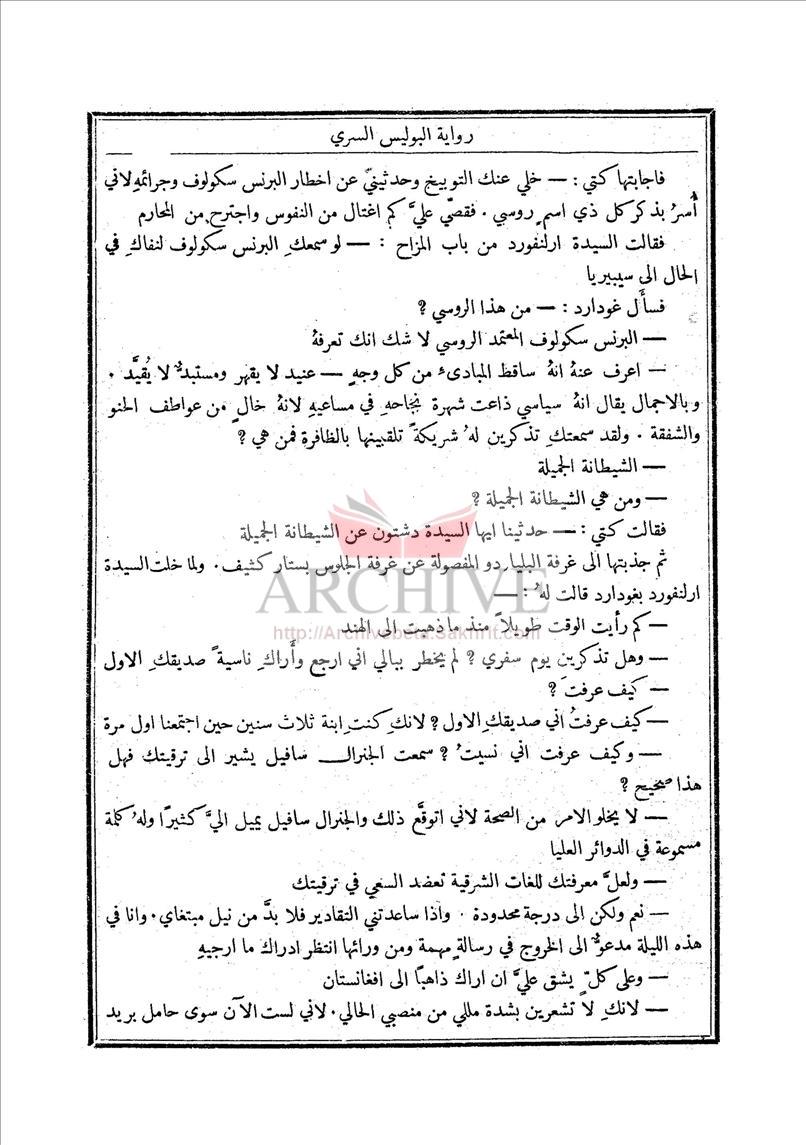 رواية البوليس السري
فاجابتها كتي : — خلي عنك التوبيخ وحدثيني عن اخطار البرنس سكولوف وجرائمهِ لاني
أُسرُّ بذكر كل ذي اسمٍ روسي . فقصّي عليَّ كم اغتال من النفوس واجترح من المحارم
فقالت السيدة ارلنفورد من باب المزاح : — لو سمعكِ البرنس سكولوف لنفاكِ في
الحال الى سيبيريا
فسأَل غودارد : — من هذا الروسي ?
— البرنس سكولوف المعتمد الروسي لا شك انك تعرفهُ
— اعرف عنهُ انهُ ساقط المبادئ من كل وجهٍ — عنيد لا يقهر ومستبدٌّ لا يُقيَّد .
وبالاجمال يقال انهُ سياسي ذاعت شهرة نجاحهِ في مساعيهِ لانهُ خالٍ من عواطف الحنو
والشفقة . ولقد سمعتكِ تذكرين لهُ شريكةً تلقبينها بالظافرة فمن هي ?
— الشيطانة الجميلة
— ومن هي الشيطانة الجميلة ?
فقالت كتي : — حدثينا ايها السيدة دشتون عن الشيطانة الجميلة
ثم جذبتها الى غرفة البليا ردو المفصولة عن غرفة الجلوس بستار كثيف . ولما خلت السيدة
ارلنفورد بغودارد قالت لهُ : —
— كم رأيت الوقت طويلاً منذ ما ذهبت الى الهند
— وهل تذكرين يوم سفري ? لم يخطر ببالي اني ارجع وأَراكِ ناسيةً صديقكِ الاول
— كيف عرفتَ ?
— كيف عرفتُ أني صديقكِ الاول ? لانكِ كنتِ ابنة ثلاث سنين حين اجتمعنا اول مرة
— وكيف عرفت اني نسيتُ ? سمعت الجنرال سافيل يشير الى ترقيتك فهل
هذا صحيح ?
— لا يخلو الامر من الصحة لاني اتوقَّع ذلك والجنرال سافيل يميل اليَّ كثيرًا ولهُ كلمة
مسموعة في الدوائر العليا
— ولعلَّ معرفتك للغات الشرقية تعضد السعي في ترقيتك
— نعم ولكن الى درجة محدودة . واذا ساعدتني التقادير فلا بدَّ من نيل مبتغاي . وانا في
هذه الليلة مدعوٌّ الى الخروج في رسالةٍ مهمة ومن ورائها انتظر ادراك ما ارجيهِ
— وعلى كلّ يشق عليَّ ان اراك ذاهبًا الى افغانستان
— لانكِ لا تشعرين بشدة مللي من منصبي الحالي . لاني لست الآن سوى حامل بريد
ARCHIVE
http://Archivebeta.Sakhrit.com